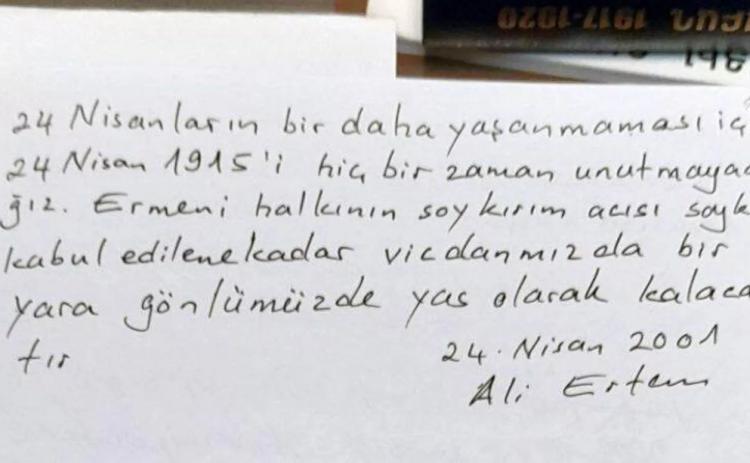 1917-1920
24 Nisanların bir daha yaşanmaması iç
24 Nisan 1915'i hiç bir zaman unutmayac
ğız. Ermeni halkının soykırım acısı soyk
kabul edilenekadar vicdanmızda bir
yara gönlümüzde yas olarak kalaca
tır
24. Nisan 2001
Ali Ertem